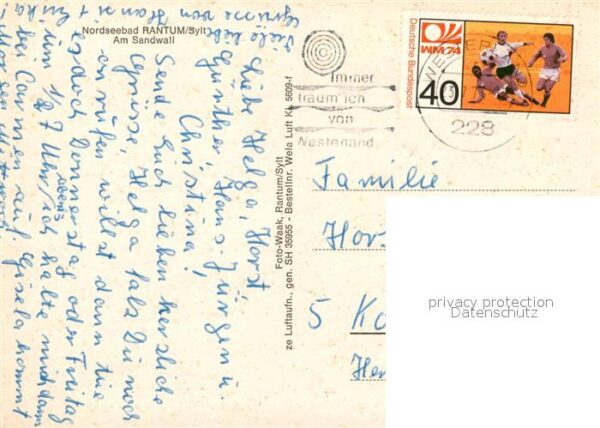 Nordseebad RANTUM/Sylt
Am Sandwall
Liebe Helga, Horst,
Günther, Hans-Jürgen u.
Christina!
Sende Euch lieben herzliche
Grüsse, Helga falls Du noch
anrufen willst dann tue
es doch Donnerstag oder Freitag
um 1/2 8 Uhr/ich halte mich dann
abends
bei Carmen auf. Gisela kommt
Viele liebe
Grüsse von
Foto-Waak, Rantum/Sylt
ze Luftaufn., gen. SH 35955 - Bestellnr. Wela Luft KK 5609-f
Immer
träum' ich
von
Westerland
228
Deutsche Bundespost
WM 74
40
Familie
Hor
5 Ko
privacy protection
Datenschutz